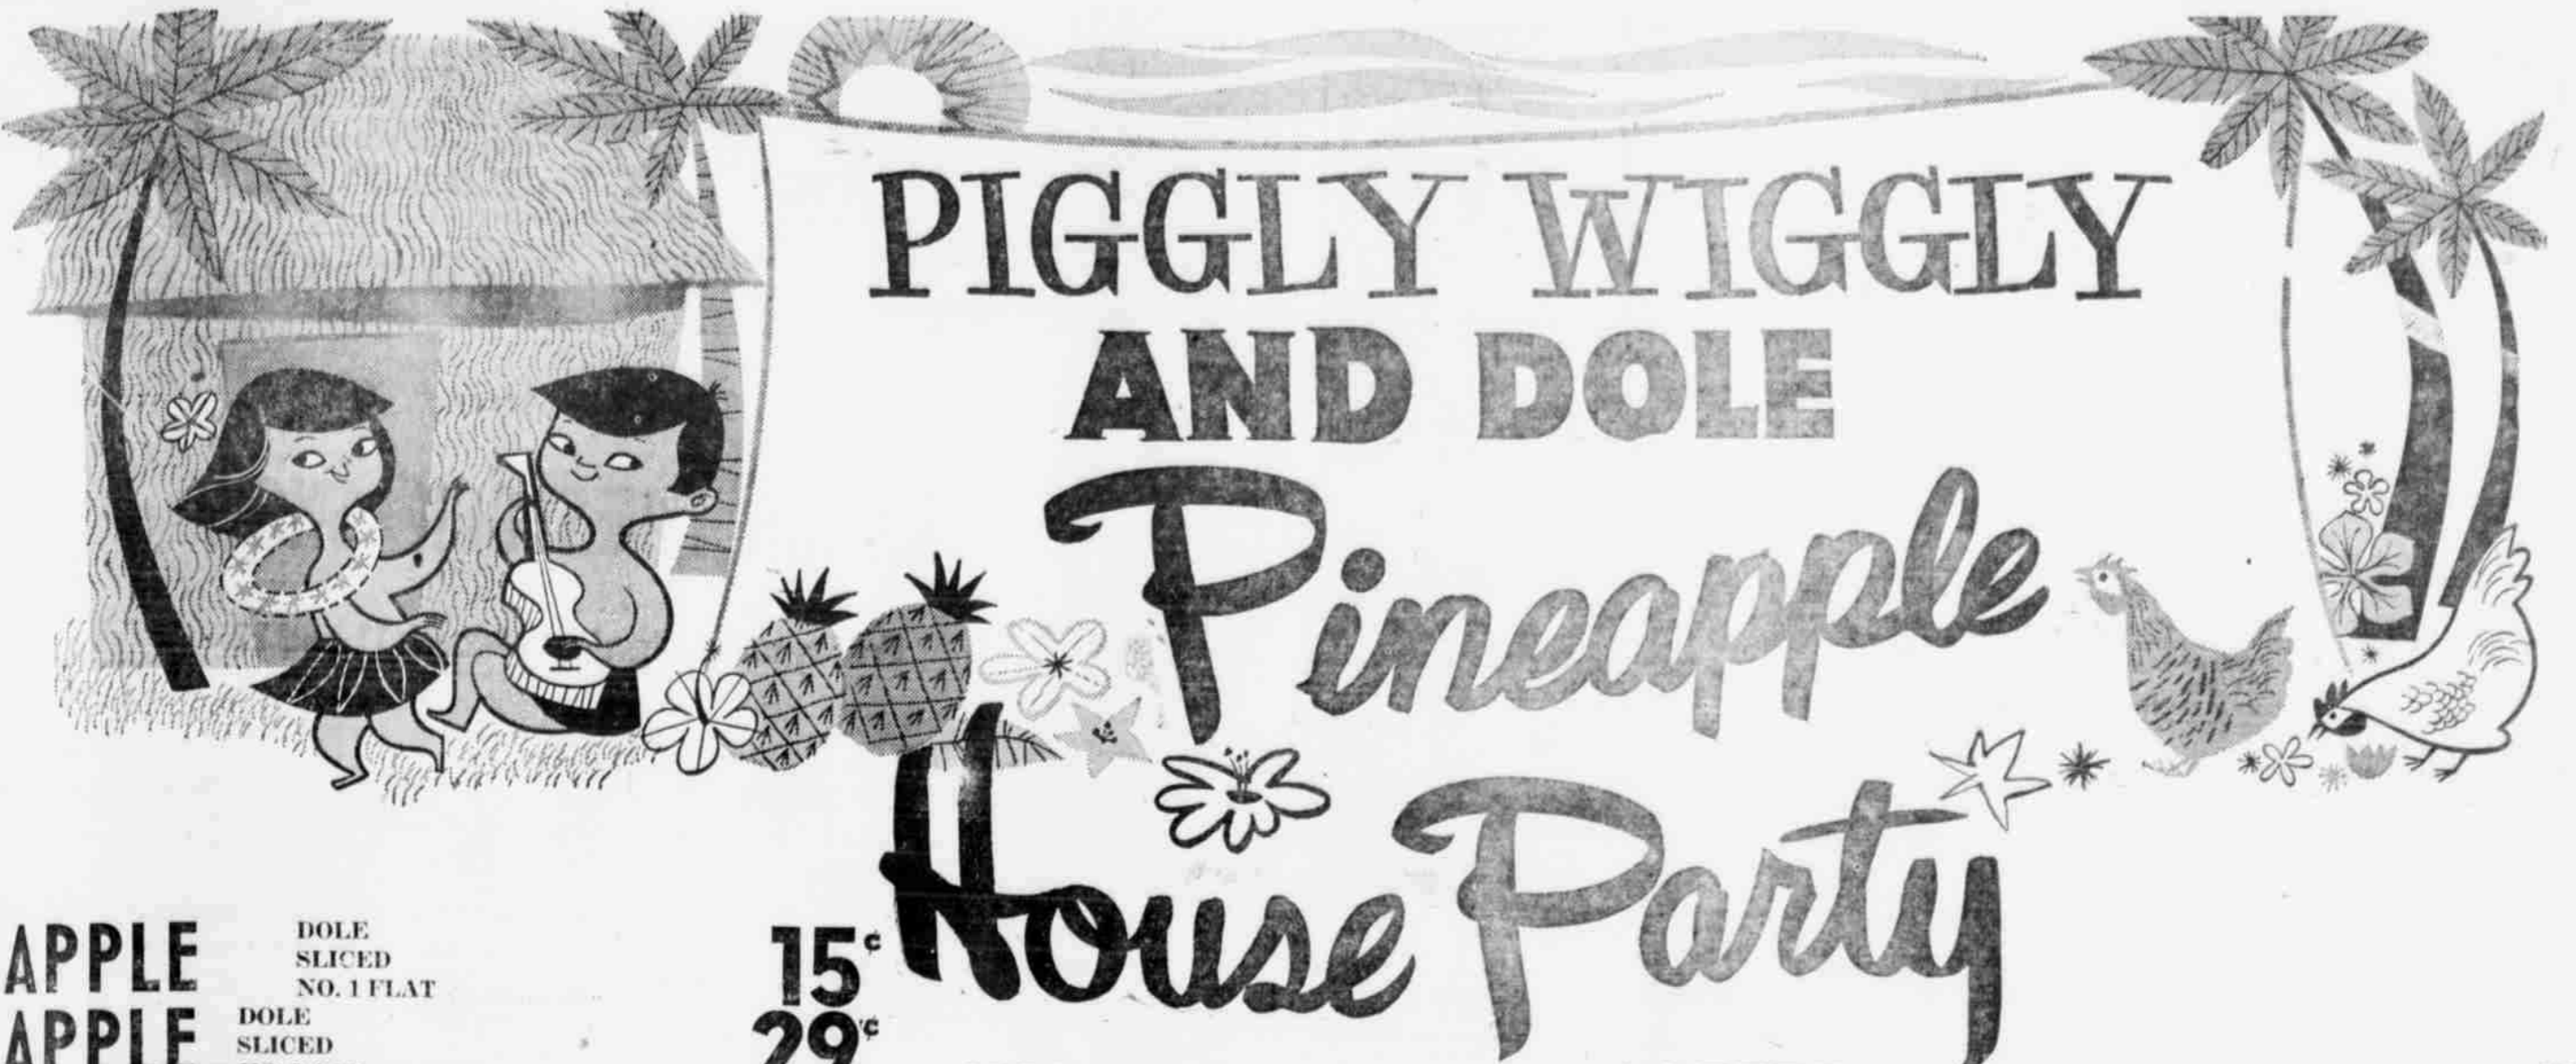 PIGGLY WIGGLY
AND DOLE
Pineapple
House Party
APPLE DOLE SLICED NO. 1 FLAT 15¢
APPLE DOLE SLICED 29¢